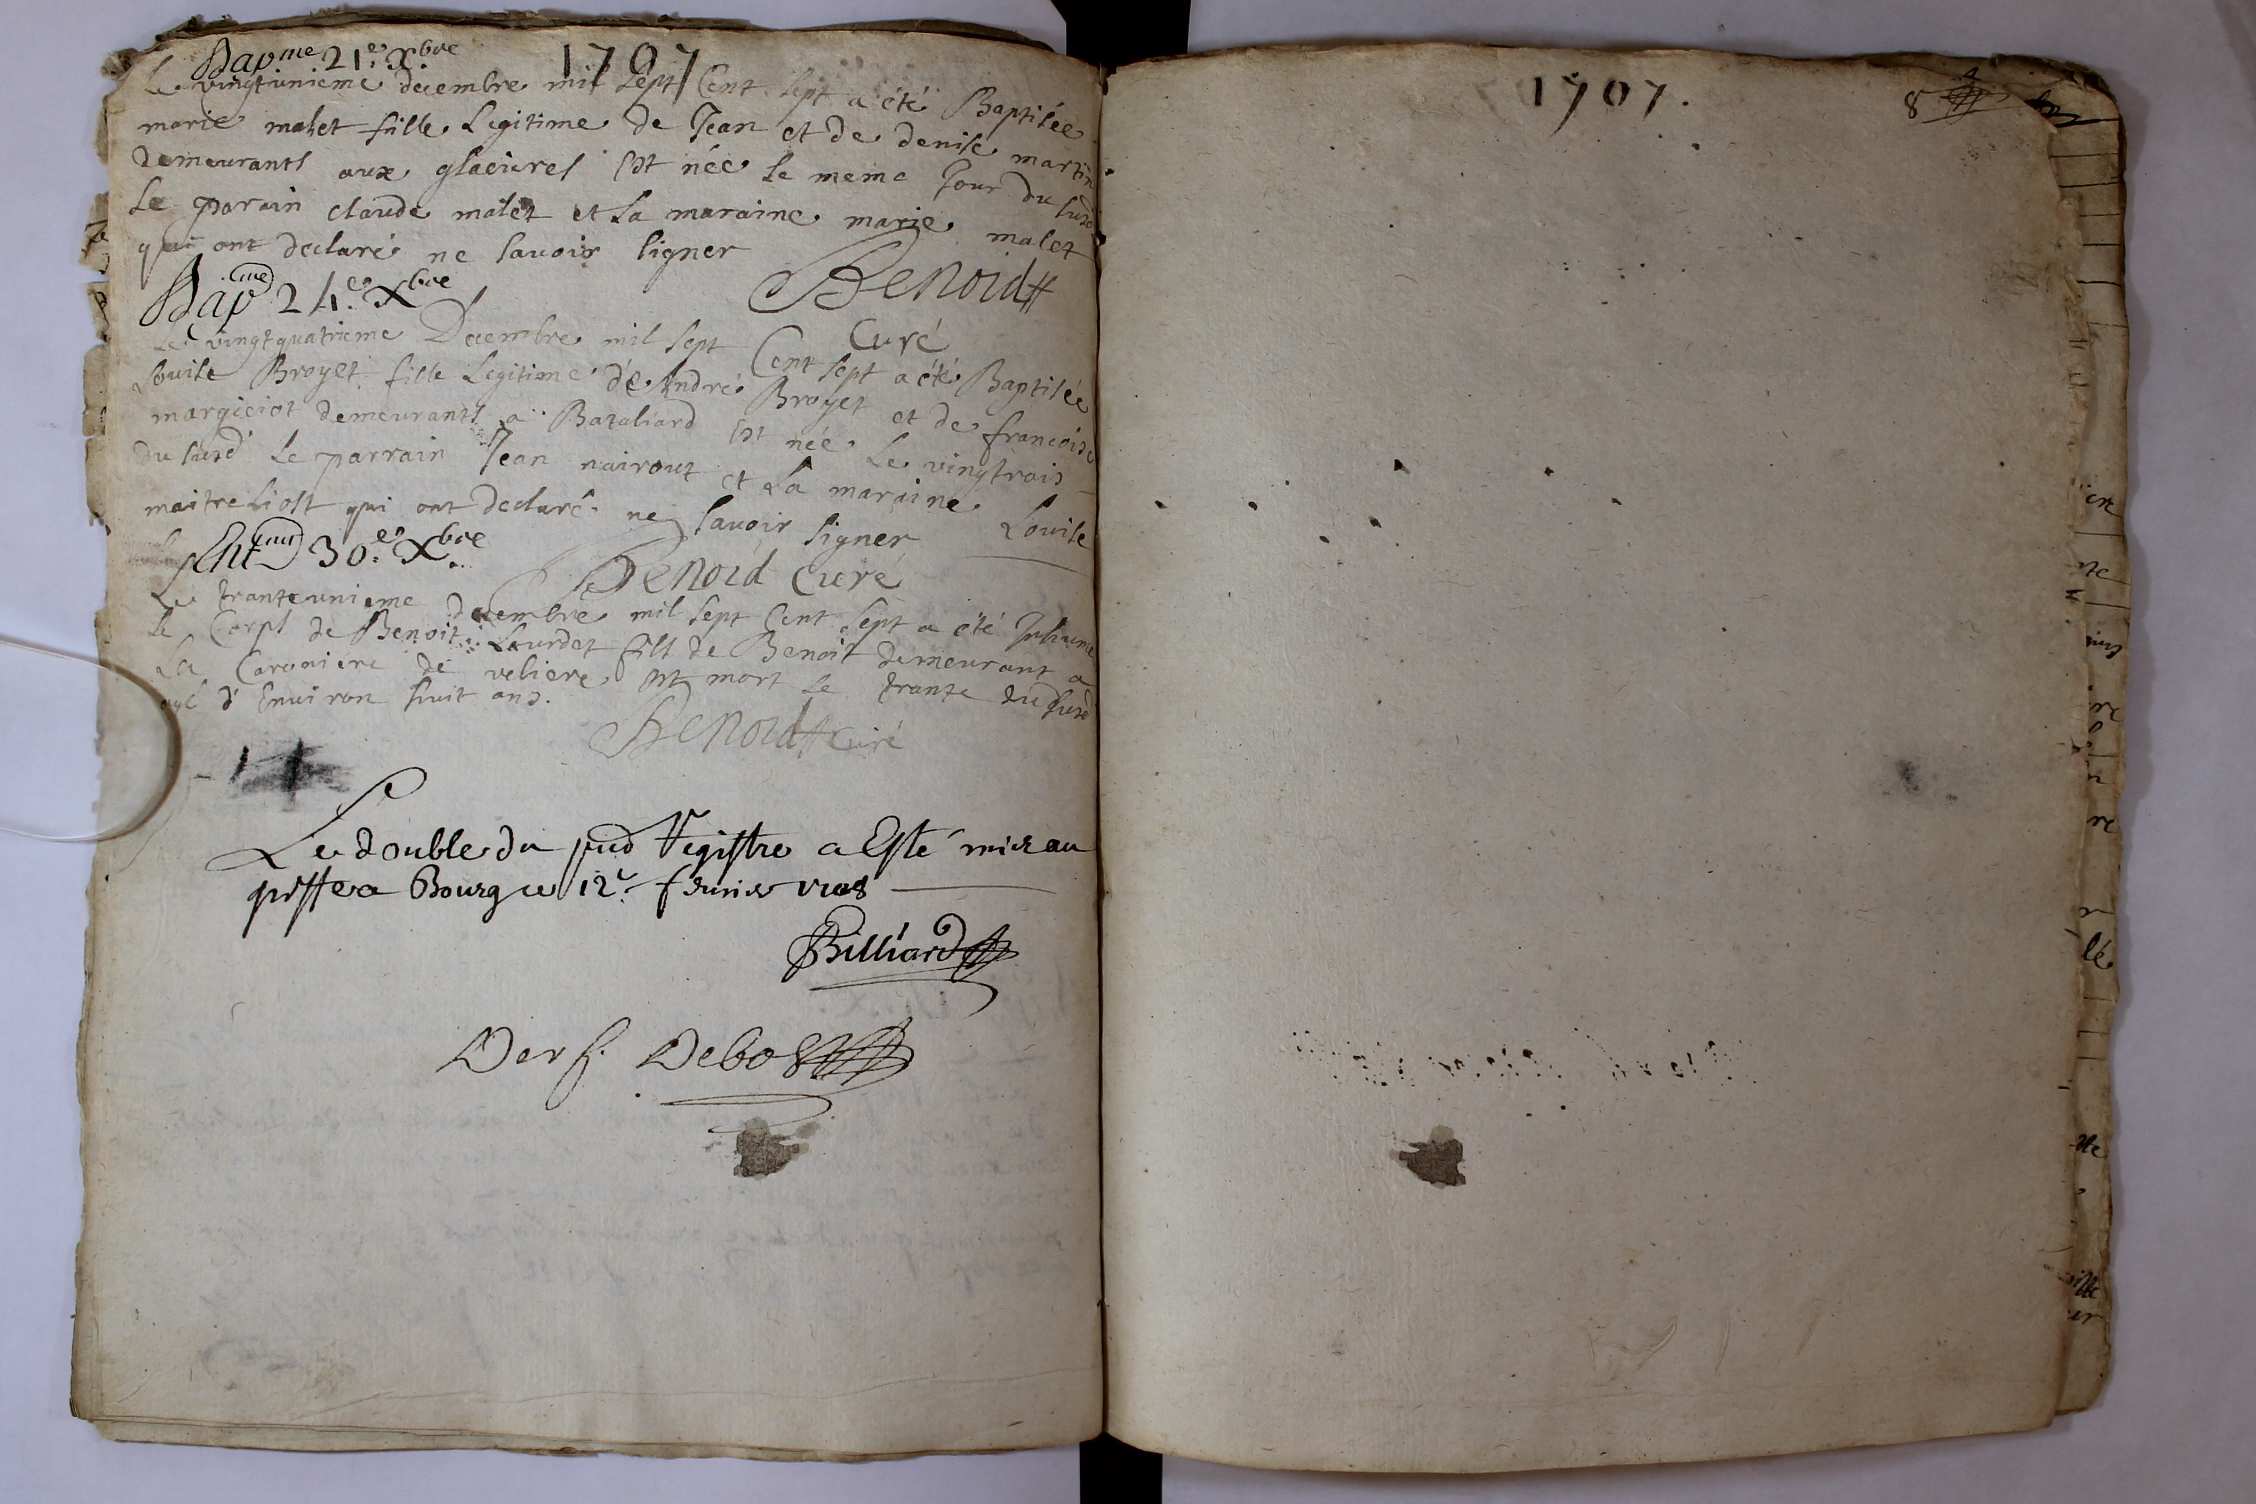 1707
Bap me 21e Xbre
Le vingtunieme decembre mil sept Cent sept a été Baptisée
marie malet fille Legitime de Jean et de denise martin
demeurants aux glacieres Est née le meme Jour du susd
Le parain claude malet et La maraine marie malet
qui ont declaré ne savoir signer
Benoid
Curé
Bap me 24e Xbre
Le vingtquatrieme Decembre mil sept Cent sept a été Baptisée
Louise Broyet fille Legitime de André Broyet et de francoise
margiciot demeurants a Bataliard Est née Le vingtrois
du susd Le parrain Jean nairout et La maraine Louise
maitre qui ont declaré ne savoir signer
Benoid Curé
Ent 30e Xbre
Le tranteunieme decembre mil sept Cent sept a été Inhumé
le Corps de Benoit Lourdet fils de Benoit demeurant a
La Caroniere de veliere Est mort le trante du susd
agé d'Environ huit ans.
Benoid Curé
Le double du pnd Registre a Esté mis au
greffe a Bourg ce 12e fevrier 1708
Billiard
Debost
1707.
8